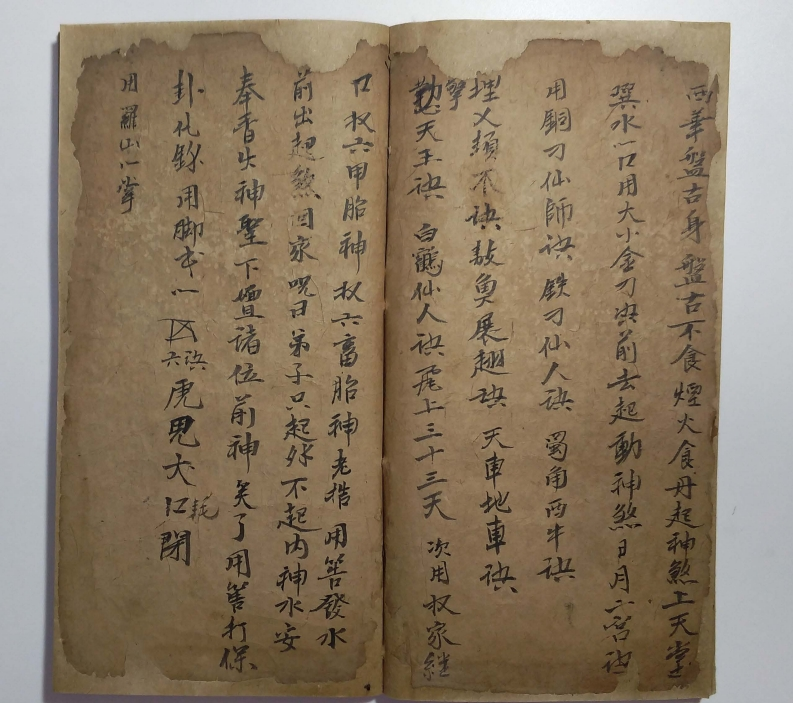 西華盤古身盤古不食煙火食丹起神煞上天堂
水一口用大小金刀决前去起動神煞日月二宮
用銅刀仙師訣鉄刀仙人訣蜀角西牛訣
埋义頼不訣敖魚展趐訣天車地車訣
勤天王訣白鶴仙人訣尾上三十三天次用权家継
口权六甲胎神权六畜胎神老㨯用筶發水
前出起煞回家呪曰弟子只起外不起内神水安
奉香火神聖下壇諸位前神笑了用筶打保
卦化錢用脚書一訣六虎鬼大口耗閉
用羅山一掌